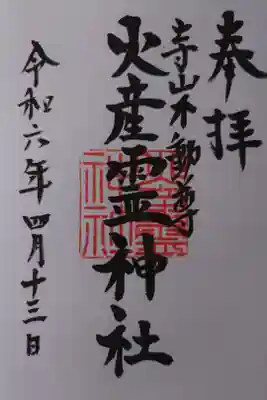 奉拝
寺山不動尊
火産霊神社
令和六年四月十三日